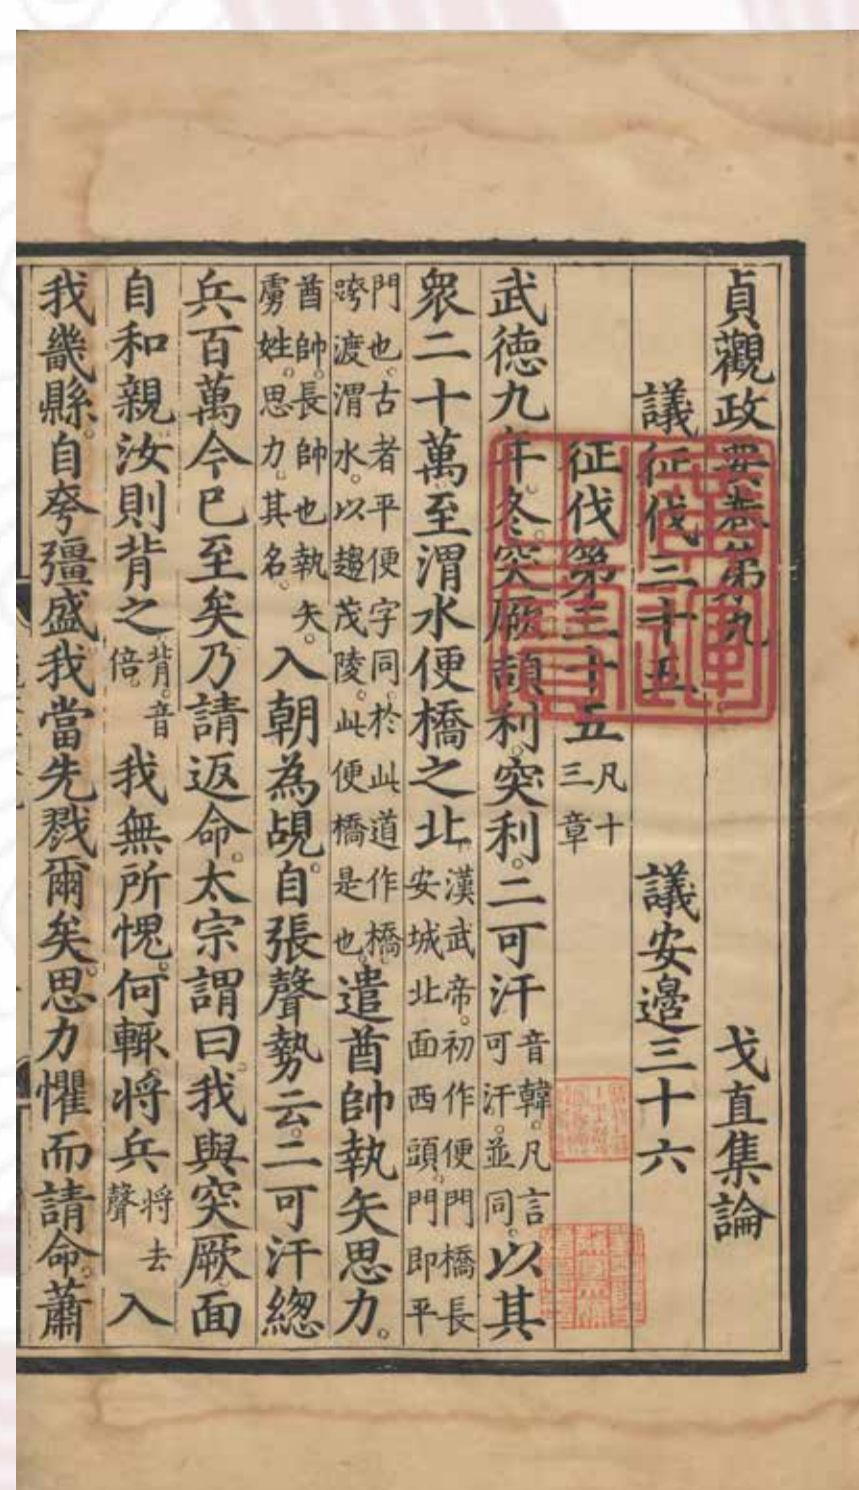 貞觀政要卷第九 戈直集論
議征伐三十五 議安邊三十六
征伐第三十五 凡十三章
武德九年冬。突厥頡利。突利。二可汗音韓。凡言可汗。並同。以其
衆二十萬至渭水便橋之北。漢武帝。初作便門橋長安城北面西頭。門即平
門也。古者平便字同。於此道作橋。跨渡渭水。以趨茂陵。此便橋是也。遣酋帥執矢思力。
酋帥。長帥也執矢。虜姓。思力。其名。入朝為覘。自張聲勢云。二可汗總
兵百萬今已至矣乃請返命。太宗謂曰。我與突厥面
自和親汝則背之背。音倍。我無所愧。何輒將兵將去聲入
我畿縣。自夸彊盛我當先戮爾矣。思力懼而請命。蕭